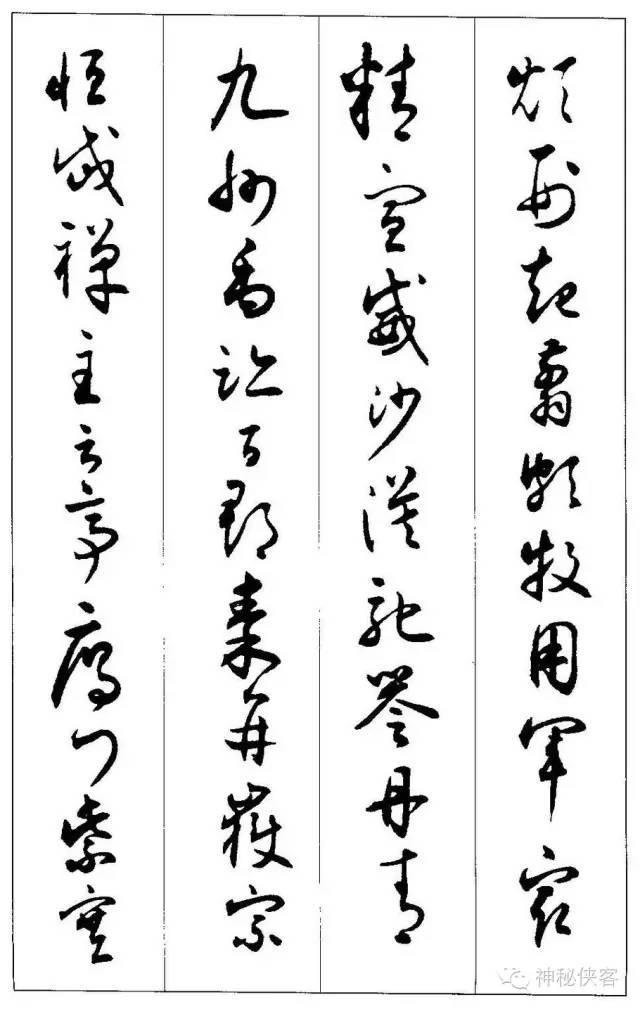 煩刑起翦頗牧用軍最
精宣威沙漠馳譽丹青
九州禹跡百郡秦并嶽宗
恒岱禪主云亭雁門紫塞
神秘侠客